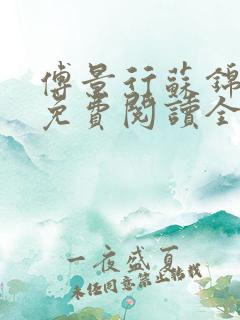 傅景行蘇錦
免費閱讀全
一夜盛夏
未經同意禁止轉載